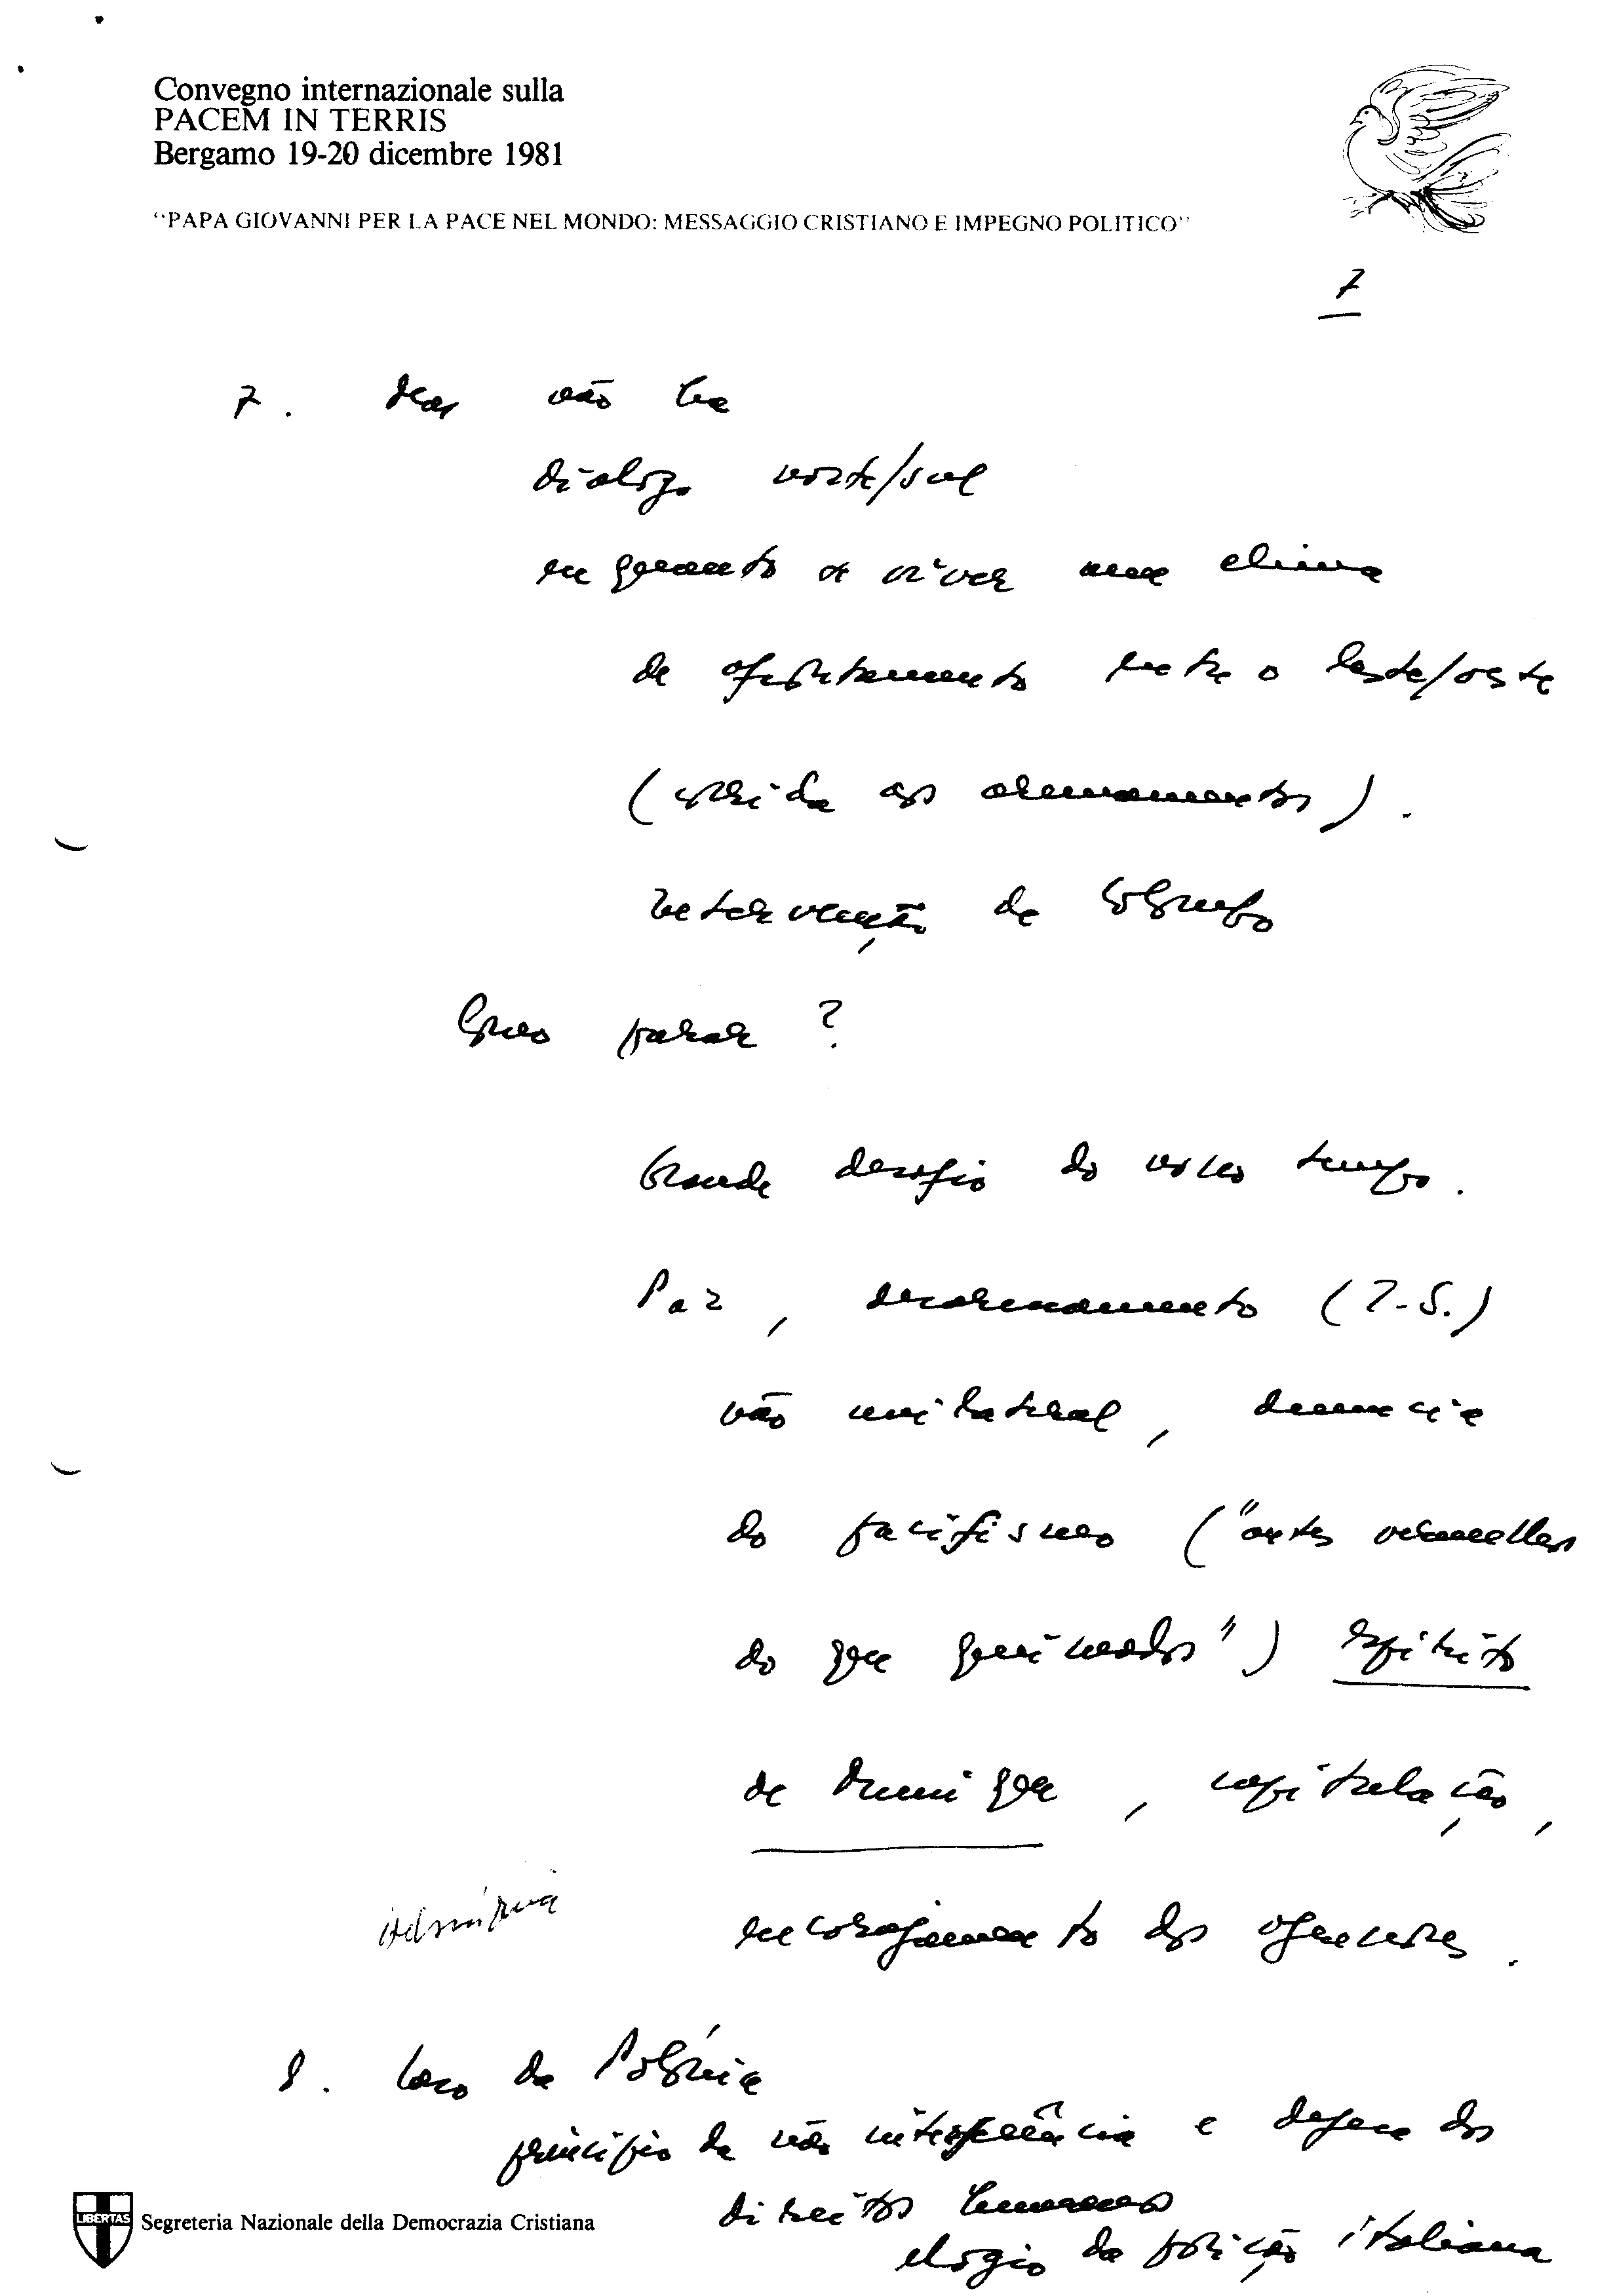 Convegno internazionale sulla
PACEM IN TERRIS
Bergamo 19-20 dicembre 1981
"PAPA GIOVANNI PER LA PACE NEL MONDO: MESSAGGIO CRISTIANO E IMPEGNO POLITICO"
7
7. Mas não há
diálogo norte/sul
enquanto o viver num clima
de afrontamento entre o leste/oeste
(corrida aos armamentos).
Intervenção de Colombo
Como parar?
Grande desafio do nosso tempo.
Paz, desarmamento (I-S.)
não unilateral, denuncia
do pacifismo ("antes vermelhos
do que queimados") espírito
de Munique, capitulação,
encorajamento dos agressores.
8. Caso da Polónia
princípio da não interferência e defesa dos
direitos humanos
elogio da posição italiana
LIBERTAS
Segreteria Nazionale della Democrazia Cristiana